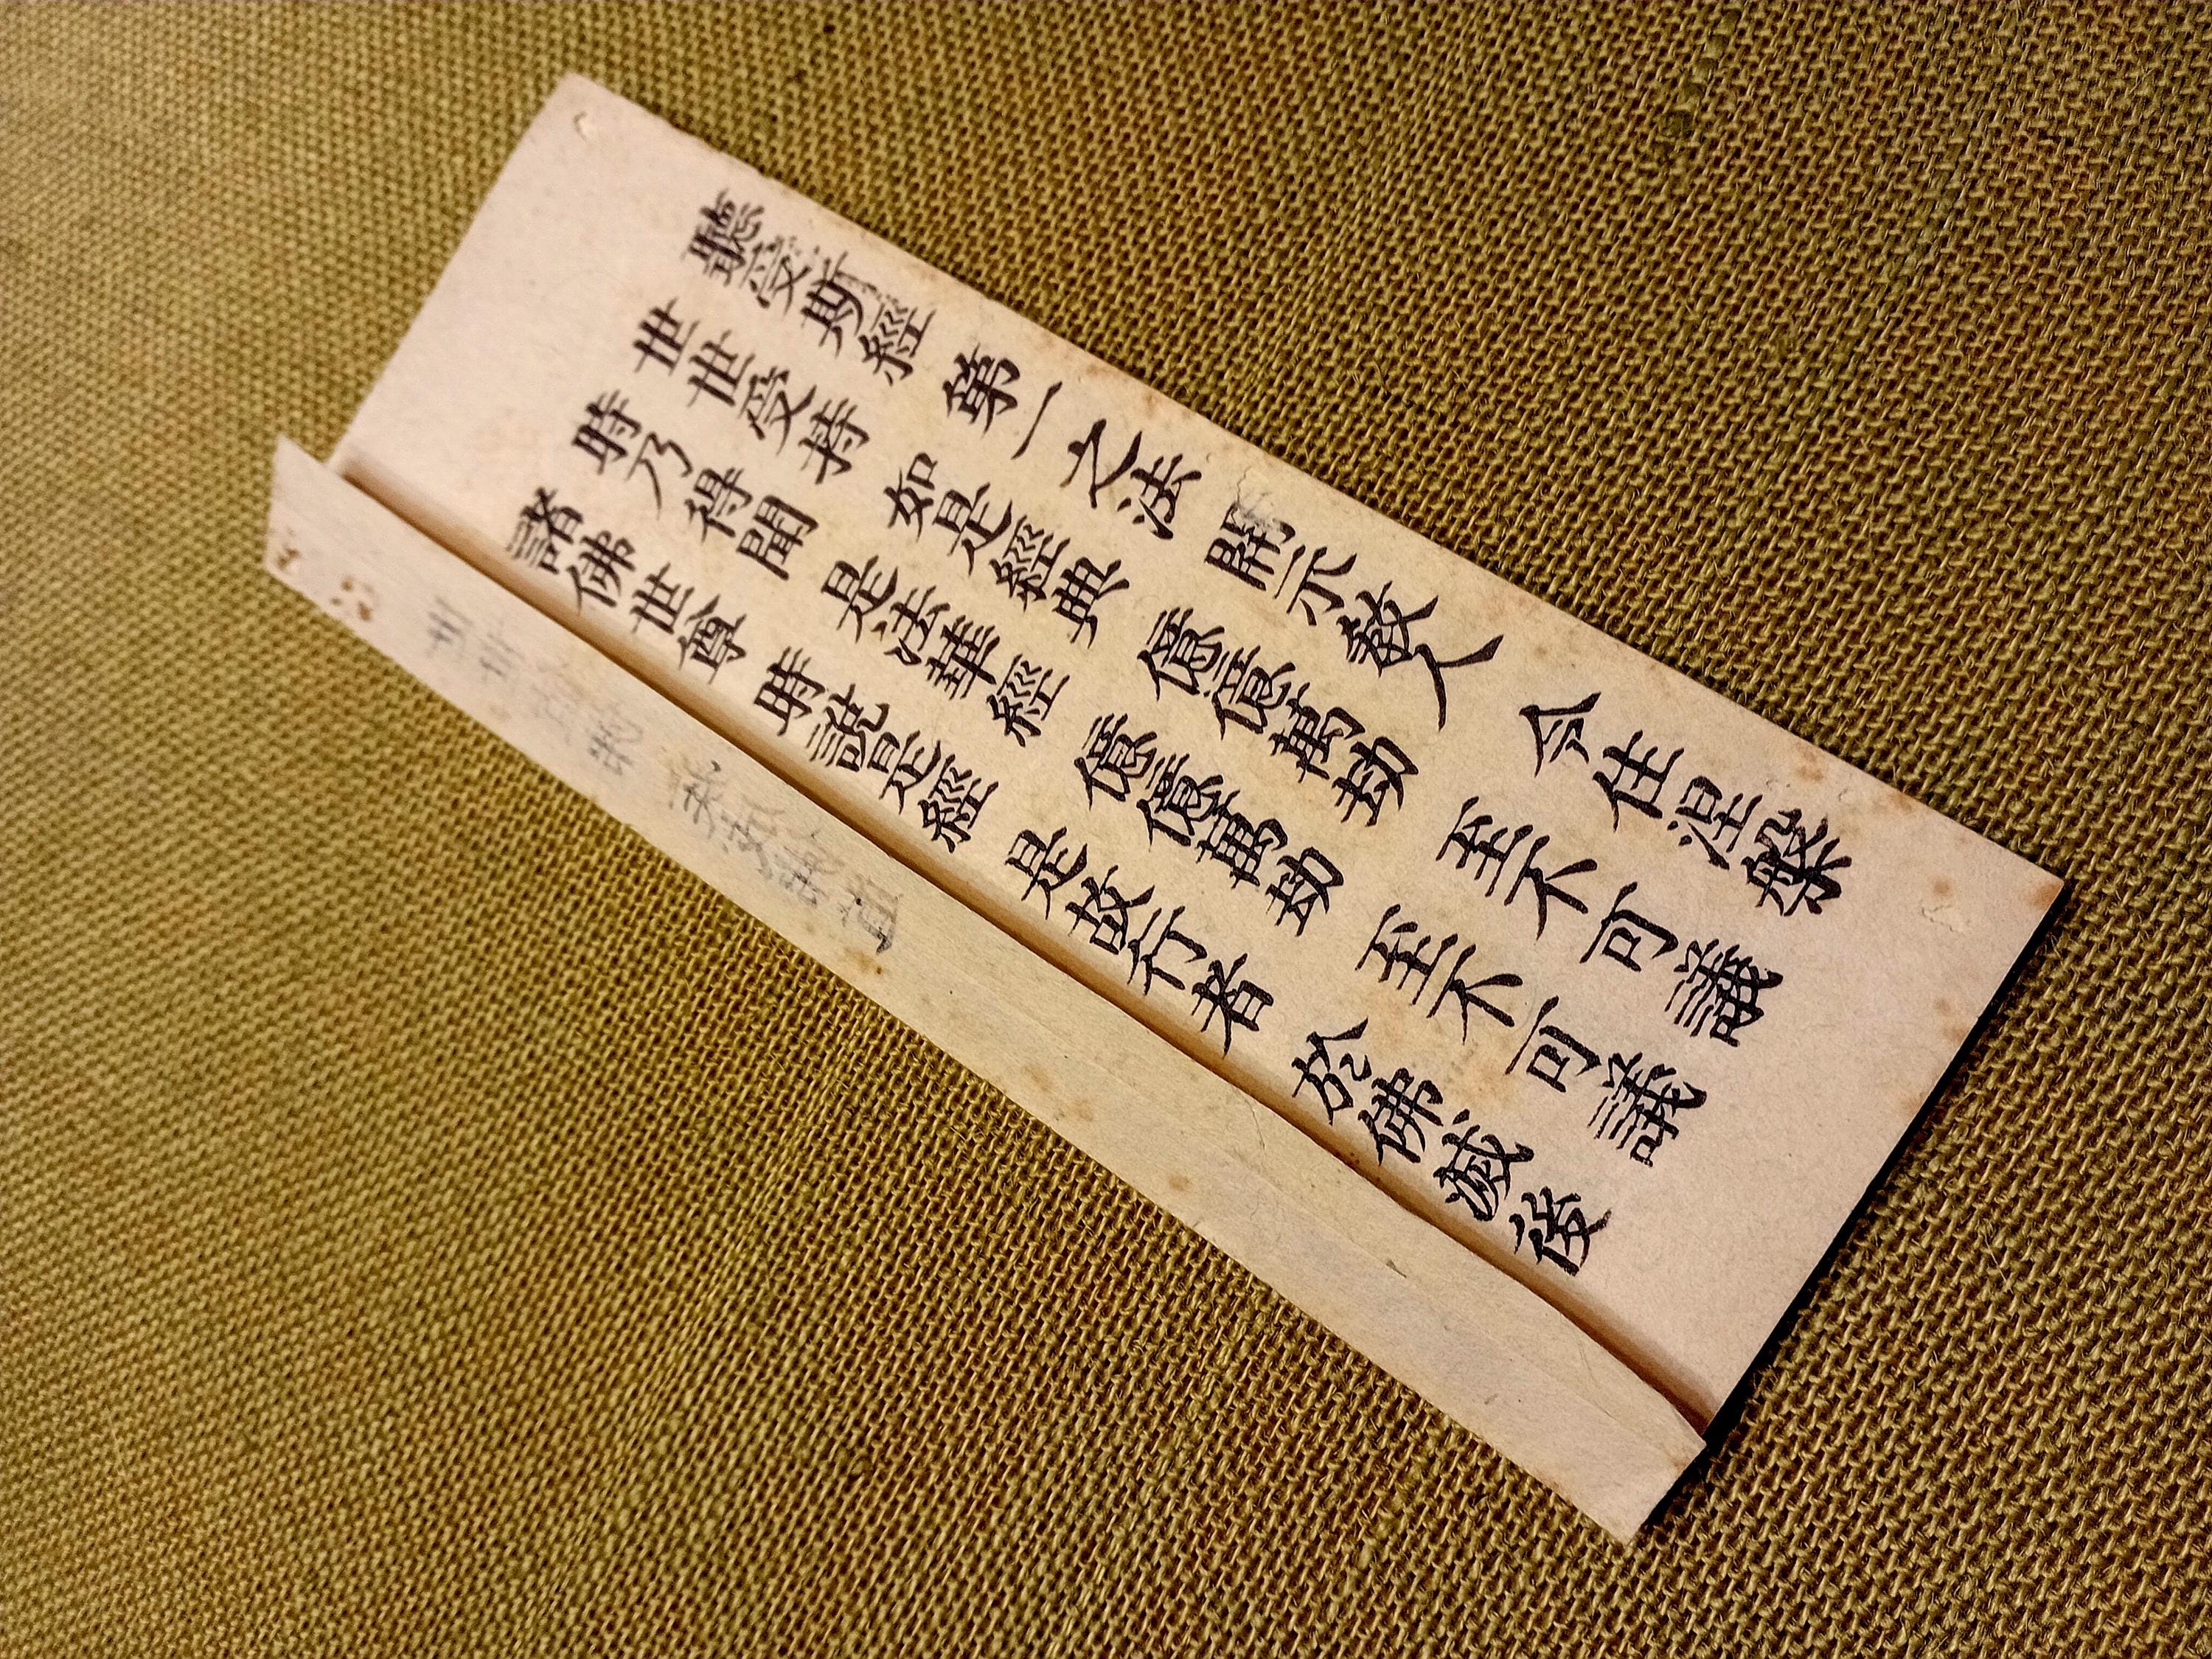 聽受斯經 第一之法 開示教人 令住涅槃
世世受持 如是經典 億億萬劫 至不可議
時乃得聞 是法華經 億億萬劫 至不可議
諸佛世尊 時說是經 是故行者 於佛滅後